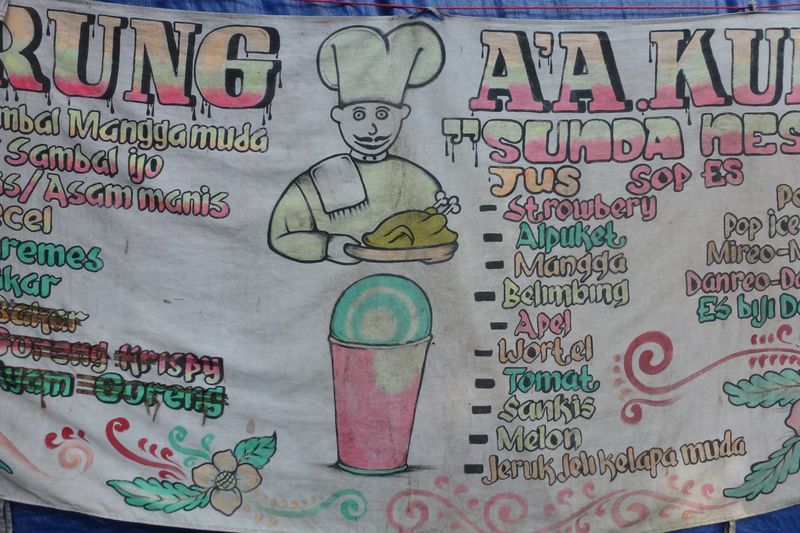 RUNG A'A.KU
"SUNDA NES
mbal Mangga muda
Sambal ijo
is/Asam manis
cel
remes
akar
Bakar
Goreng Krispy
Ayam Goreng
JUS
Strowbery
Alpuket
Mangga
Belimbing
Apel
Wortel
Tomat
Sankis
Melon
Jeruk Jeli kelapa muda
SOP ES
Pop ice
Mireo-
Danreo-Da
Es biji De